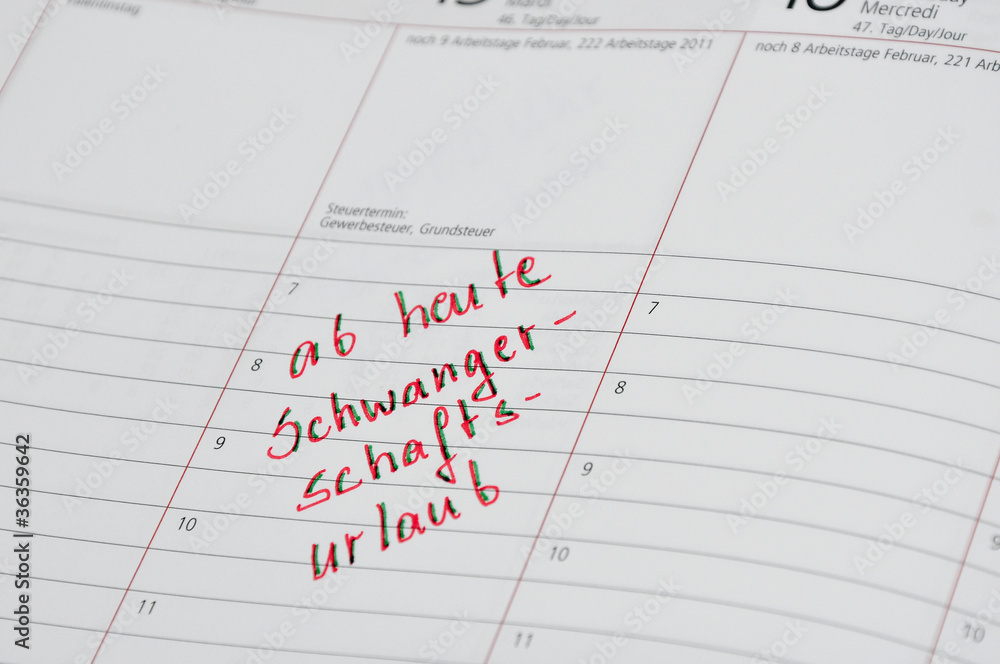 Valentinstag
Mardi
46. Tag/Day/Jour
16
Mercredi
47. Tag/Day/Jour
noch 9 Arbeitstage Februar, 222 Arbeitstage 2011
noch 8 Arbeitstage Februar, 221 Arb
Steuertermin:
Gewerbesteuer, Grundsteuer
7
8
9
10
11
ab heute
Schwanger-
schafts-
urlaub
7
8
9
10
11
9
10
Adobe Stock | #36359642